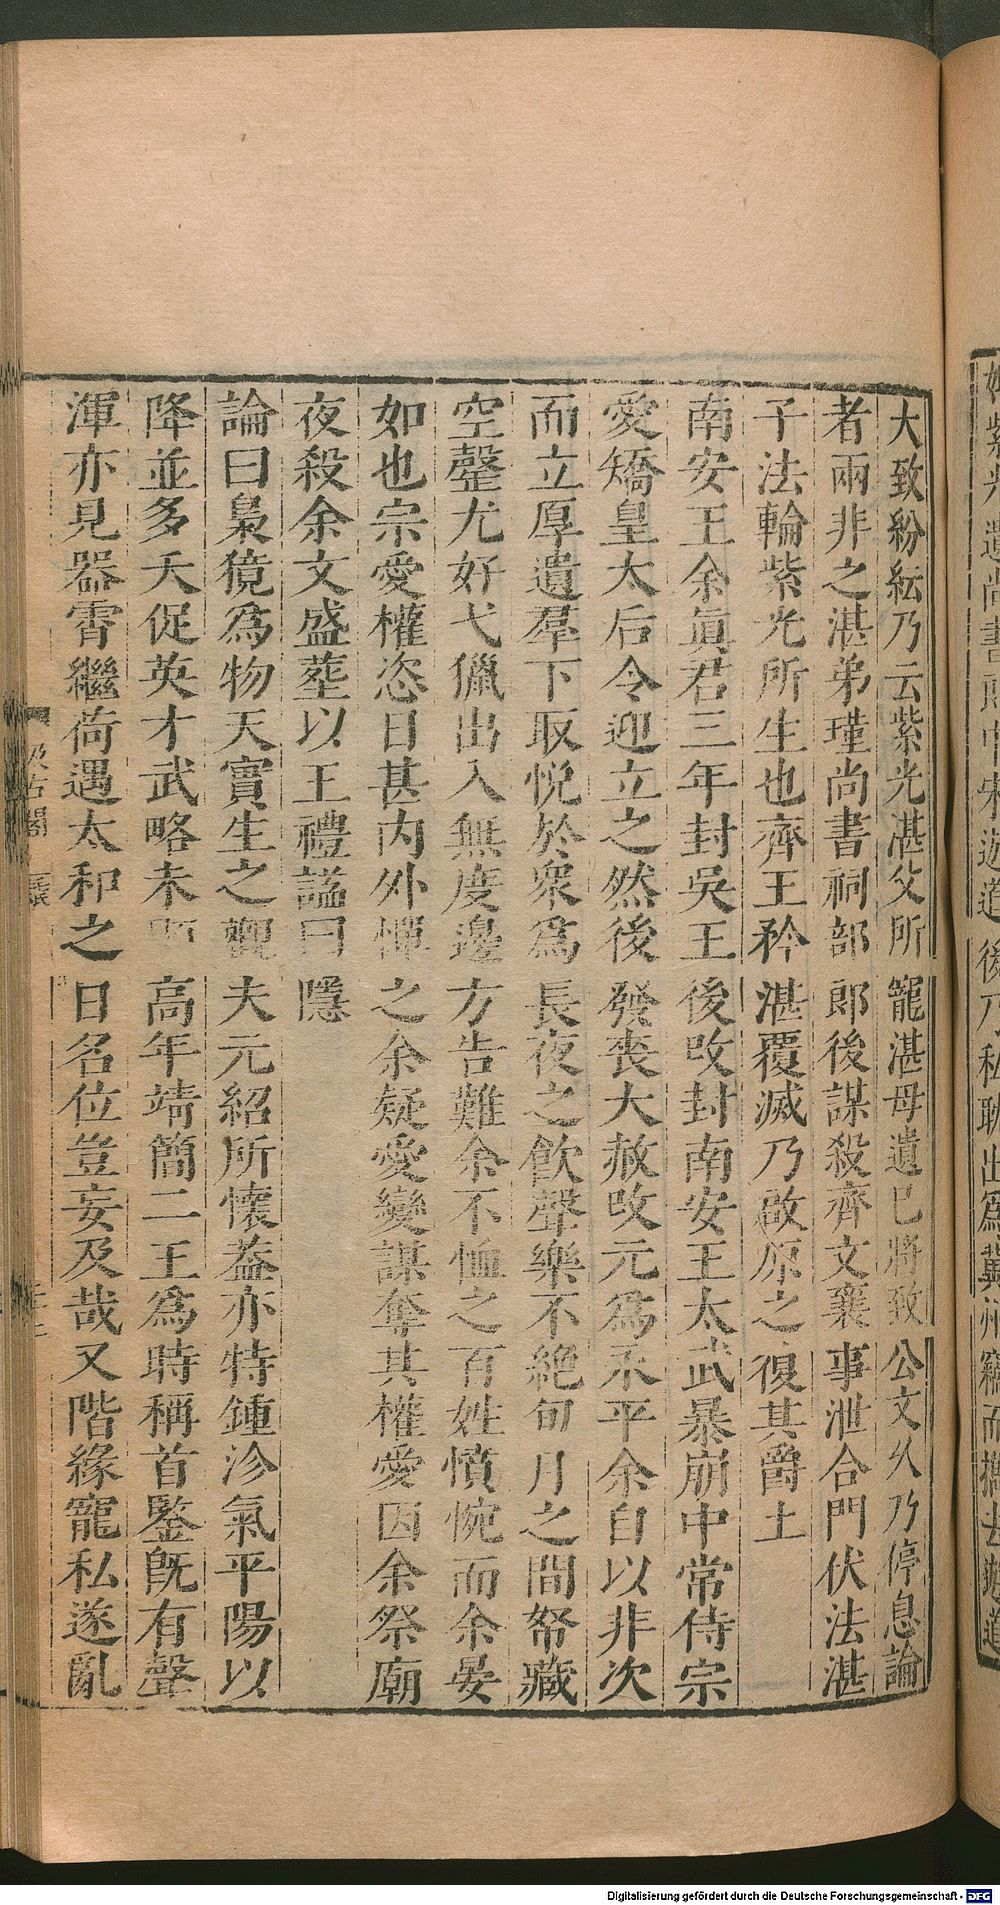 大致紛紜乃云紫光湛父所寵湛母遺已將致公文久乃停息論
者兩非之湛弟瑾尚書祠部郎後謀殺齊文襄事泄合門伏法湛
子法輪紫光所生也齊王矜湛覆滅乃啟原之復其爵土
南安王余眞君三年封吳王後改封南安王太武暴崩中常侍宗
愛矯皇太后令迎立之然後發喪大赦改元爲承平余自以非次
而立厚遺羣下取悅於衆爲長夜之飲聲樂不絕旬月之間帑藏
空罄尤好弋獵出入無度邊方告難余不恤之百姓憤惋而余晏
如也宗愛權恣日甚內外憚之余疑愛變謀奪其權愛因余祭廟
夜殺余文盛葬以王禮謚曰隱
論曰梟獍爲物天實生之觀夫元紹所懷蓋亦特鍾沴氣平陽以
降並多夭促英才武略未顯高年靖簡二王爲時稱首鑒旣有聲
渾亦見器霄繼荷遇太和之日名位豈妄及哉又階緣寵私遂亂
汲古閣
Digitalisierung gefördert durch die Deutsche Forschungsgemeinschaft - DFG